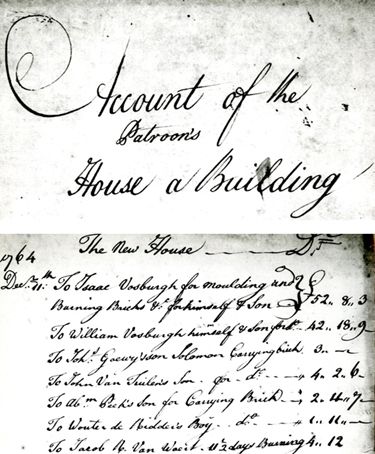 Account of the
Patroon's
House a Building
1764 The New House — Dr
Decr 11th To Isaac Vosburgh for moulding and
Burning Bricks &c for himself & Son £52 .. 8 .. 3
To William Vosburgh himself & Son for do. 42 .. 18 .. 9
To Solomon Carrying brick 3 .. —
To John Van Son for do. — 4 .. 2 .. 6
To Abm Peek's Son for Carrying Brick 2 .. 4 .. 7
To Wouter de Ridder's Boy do. — 1 .. 11 .. —
To Jacob R. Van 2 days Burning 4 .. 12